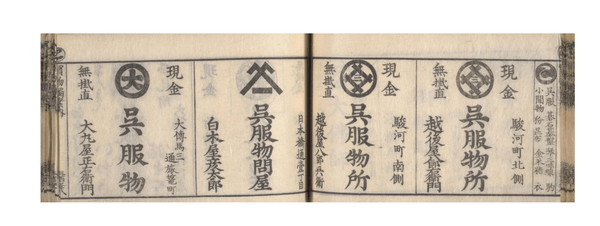 現金
駿河町北側
呉服物所
無掛直
越後屋八郎右衛門
現金
駿河町南側
呉服物所
無掛直
越後屋八郎兵衛
日本橋通壹丁目
呉服物問屋
白木屋彦太郎
現金
大傳馬三
通旅籠町
大
呉服物
無掛直
大丸屋正右衛門